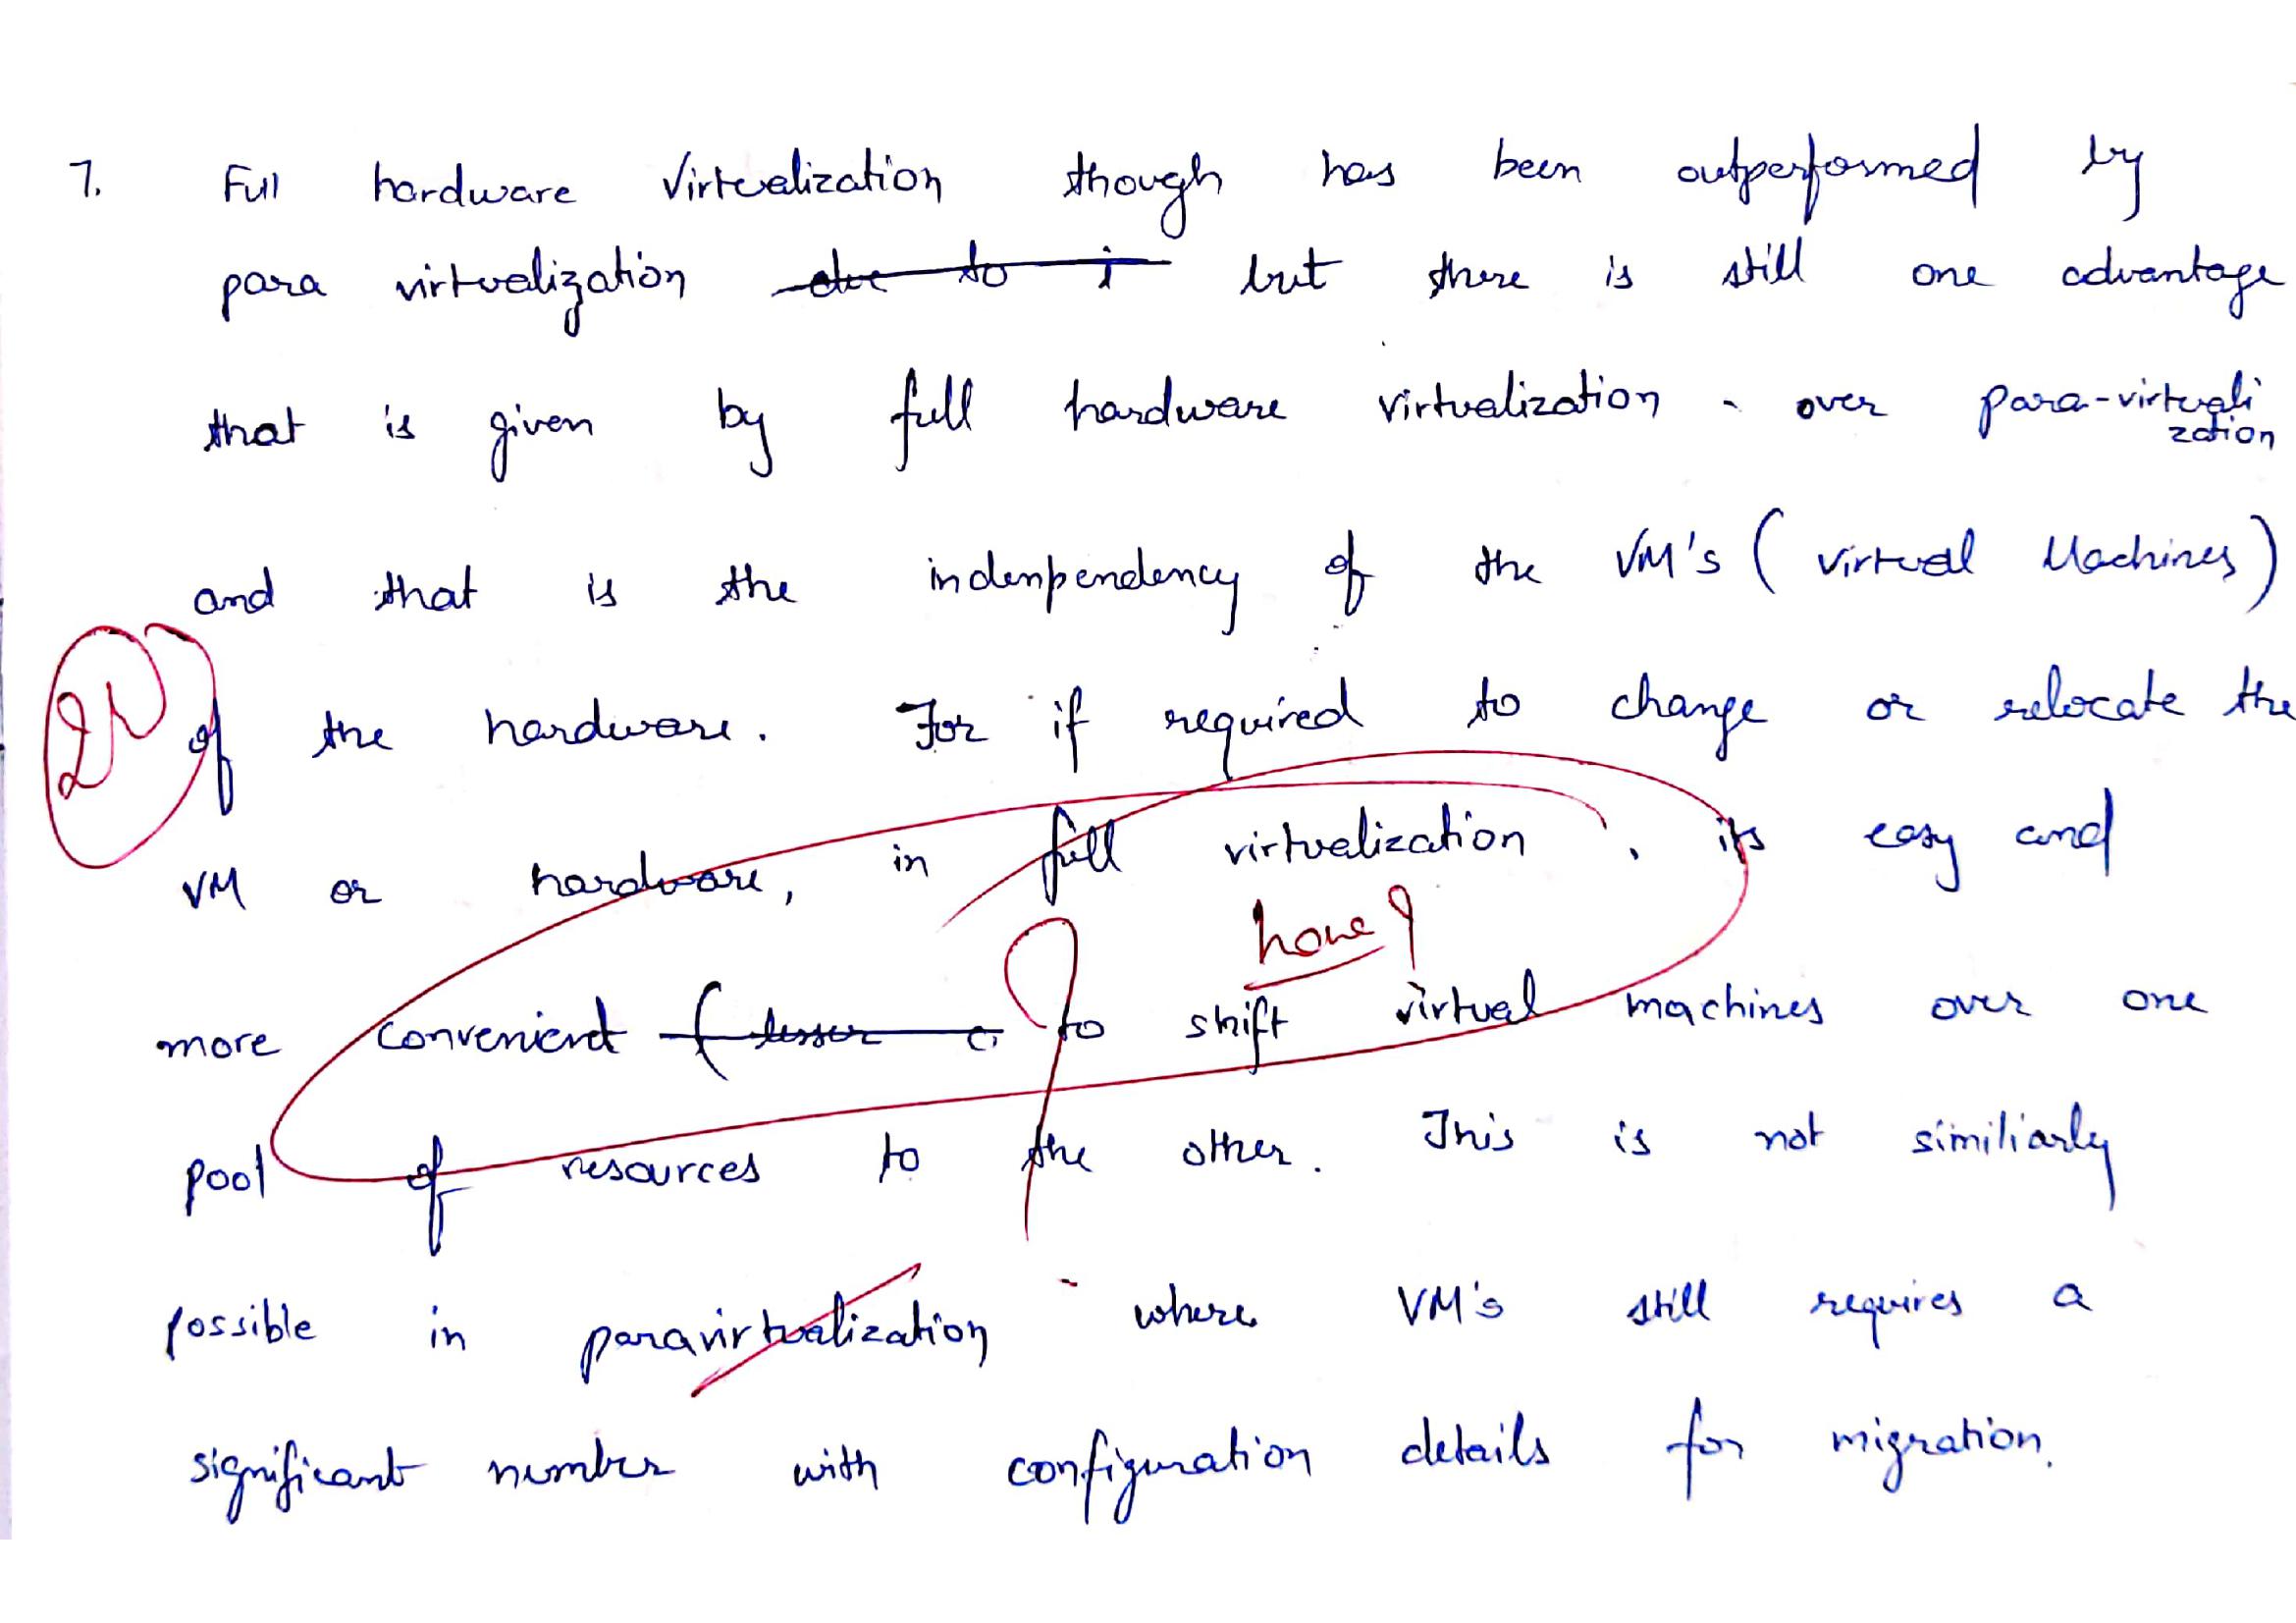 7. Full hardware Virtualization though has been outperformed by
para virtualization due to i but there is still one advantage
that is given by full hardware virtualization - over para-virtuali
zation
and that is the indenpendency of the VM's ( Virtual Machines)
of the hardware. For if required to change or relocate the
VM or hardware, in full virtualization, its easy and
how ?
more convenient ( lesser to shift virtual machines over one
pool of resources to the other. This is not similiarly
possible in paravirtualization where VM's still requires a
significant number with configuration details for migration.